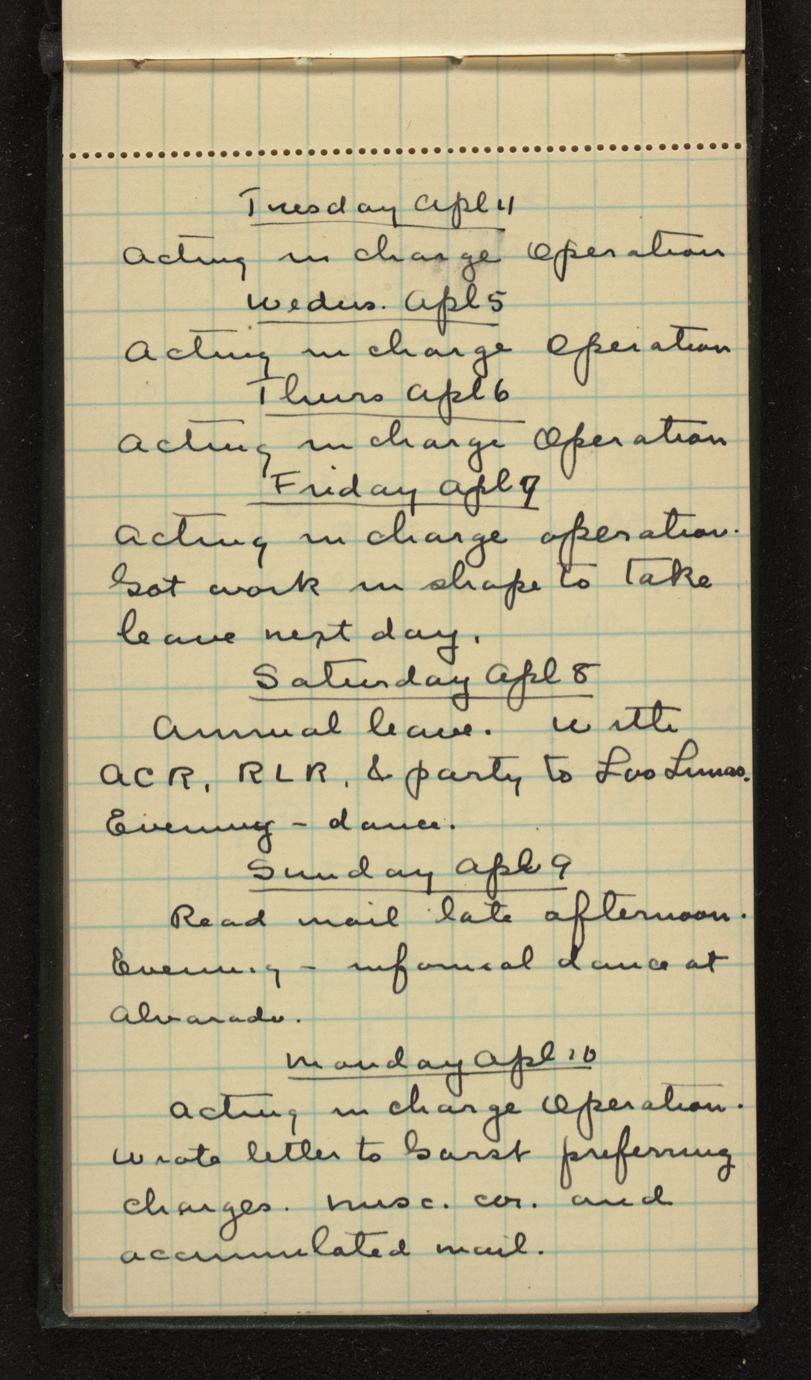 Tuesday Apl 4
Acting in charge Operation
Wednes. Apl 5
Acting in charge Operation
Thurs Apl 6
Acting in charge Operation
Friday Apl 7
Acting in charge operation.
Got work in shape to take
leave next day.
Saturday Apl 8
Annual leave. With
ACR, RLR, & party to Los Lunas.
Evening - dance.
Sunday Apl 9
Read mail late afternoon.
Evening - informal dance at
Alvarado.
Monday Apl 10
Acting in charge Operation.
Wrote letter to Garst preferring
charges. Misc. cor. and
accumulated mail.